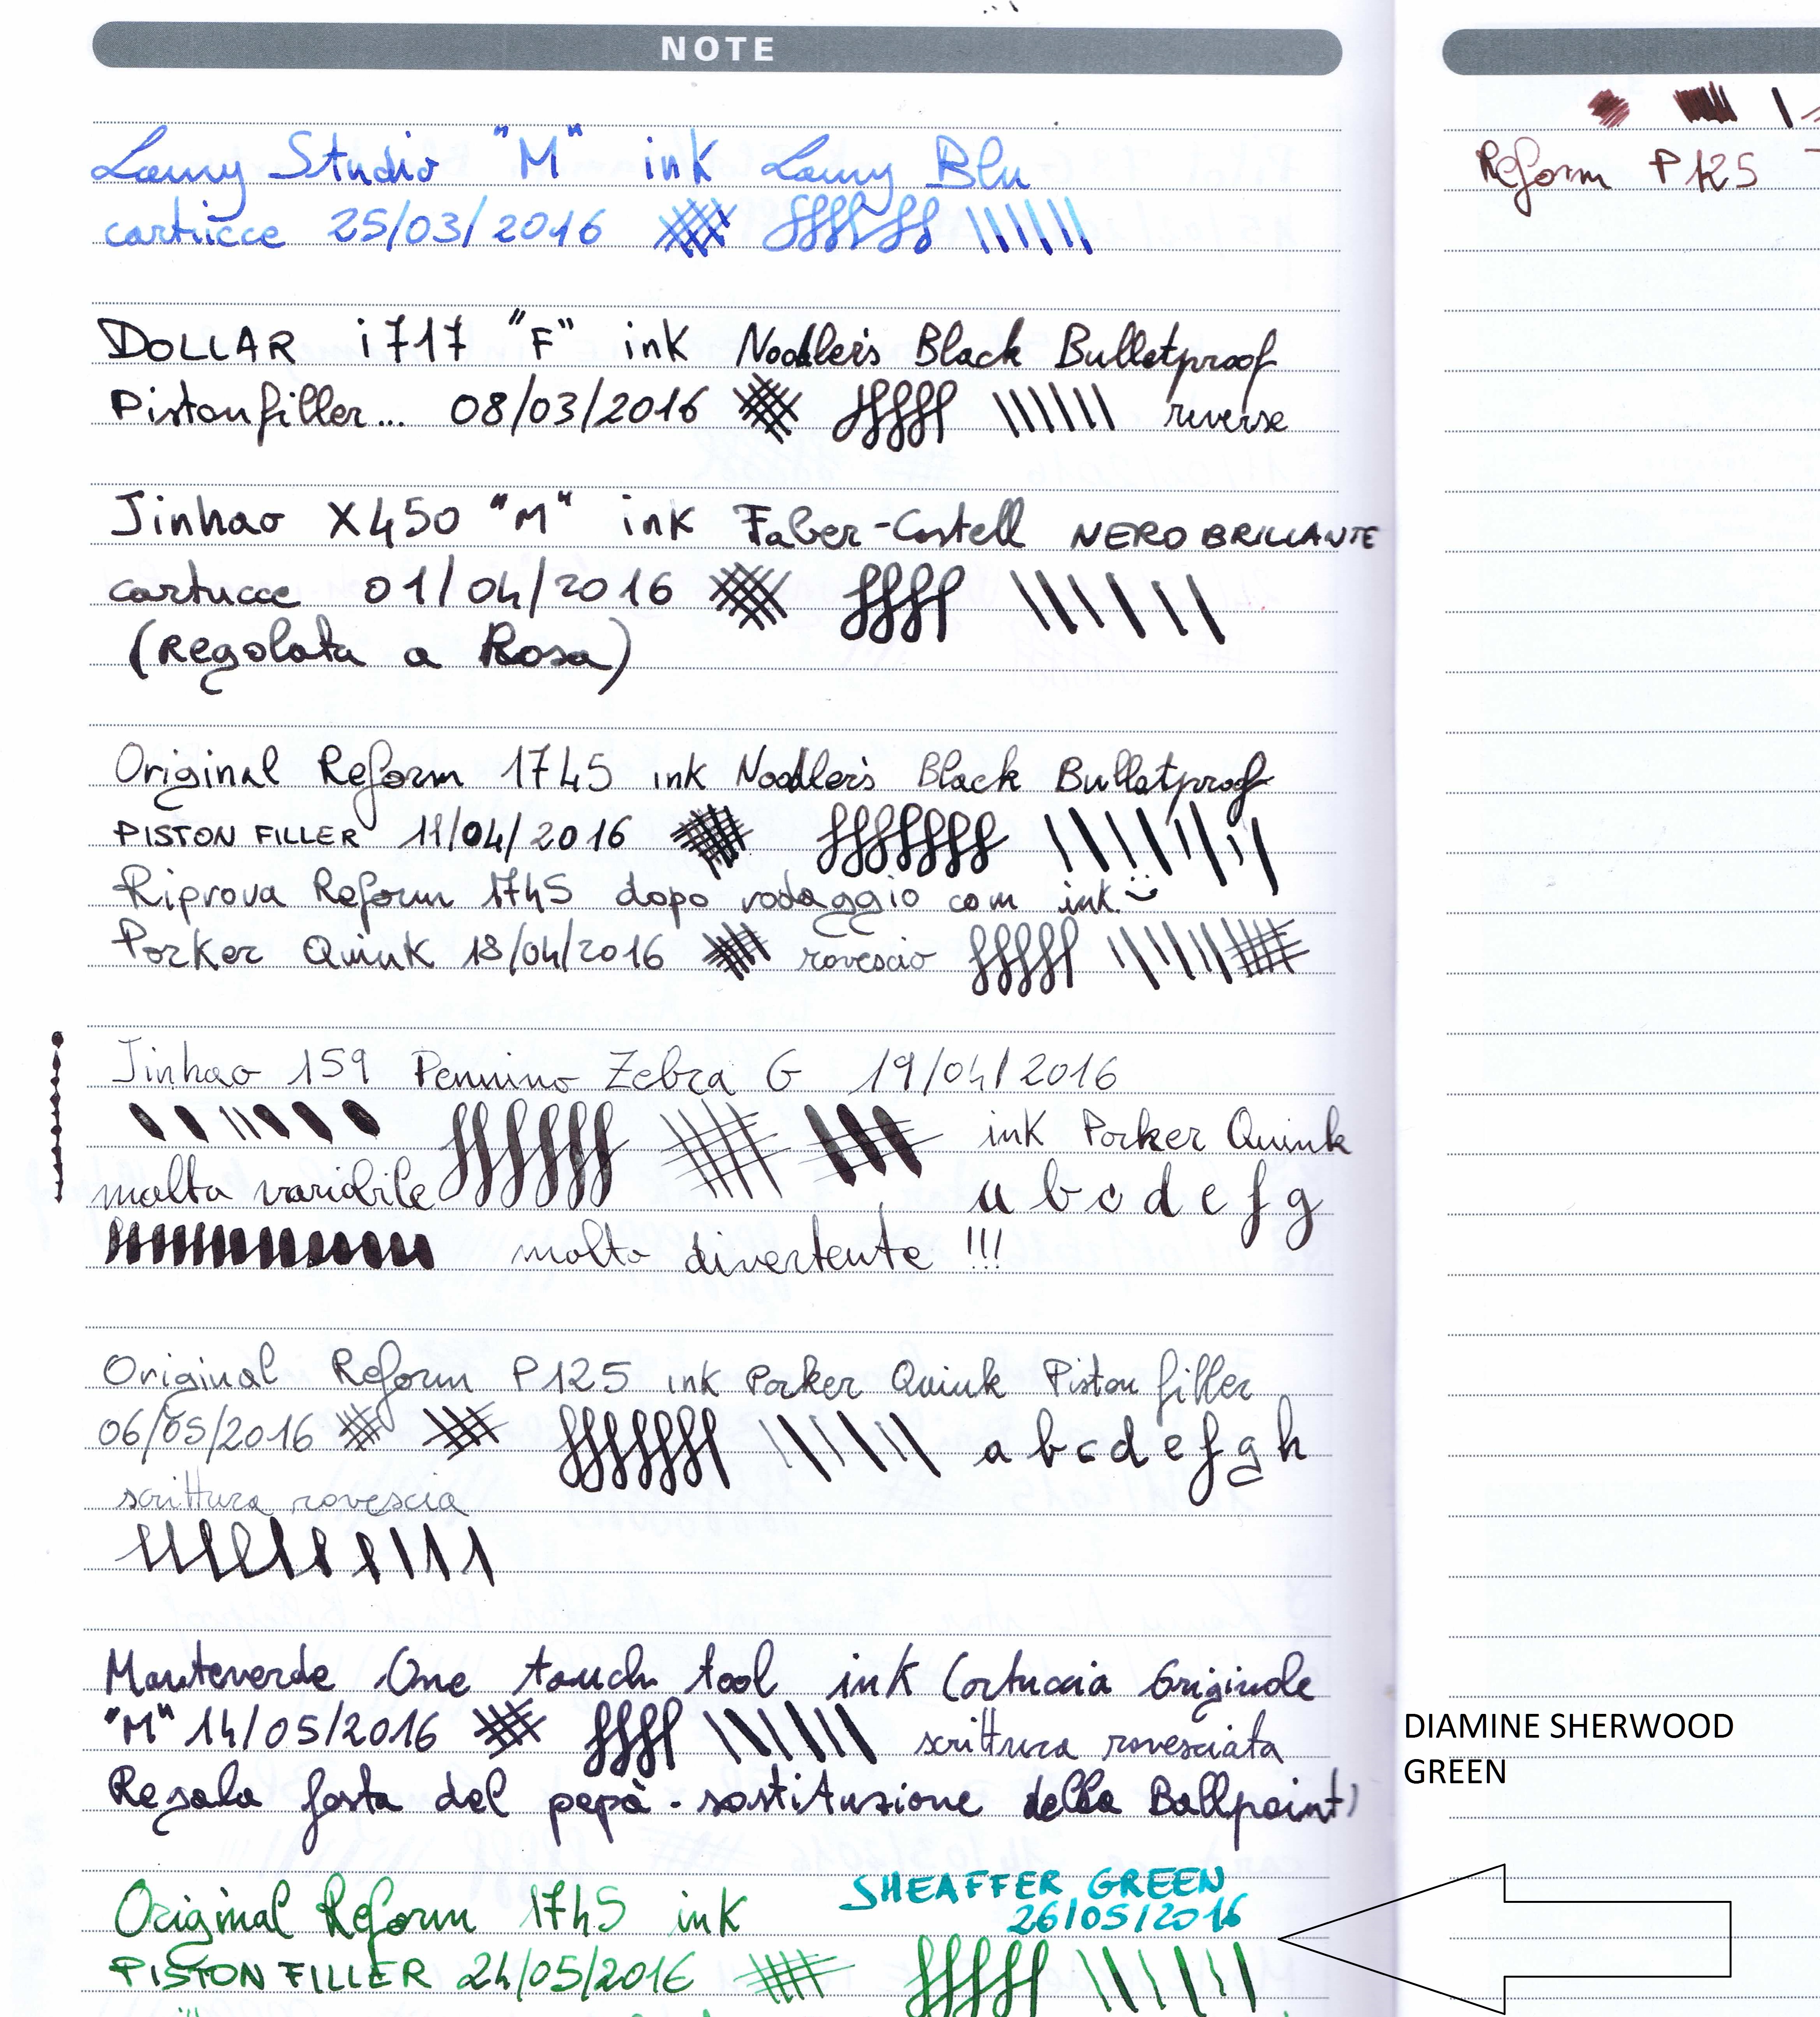 NOTE
Lamy Studio "M" ink Lamy Blu
cartucce 25/03/2016
DOLLAR i717 "F" ink Noodler's Black Bulletproof
Pistonfiller... 08/03/2016 reverse
Jinhao X450 "M" ink Faber-Castell NERO BRILLANTE
cartucce 01/04/2016
(Regolata a Rosa)
Original Reform 1745 ink Noodler's Black Bulletproof
PISTON FILLER 11/04/2016
Riprova Reform 1745 dopo rodaggio com ink
Parker Quink 18/04/2016 rovescio
Jinhao 159 Pennino Zebra G 19/04/2016
ink Parker Quink
molto variabile a b c d e f g
molto divertente !!!
Original Reform P125 ink Parker Quink Piston filler
06/05/2016 a b c d e f g h
scrittura rovescia
Monteverde One touch tool ink Cartuccia Originale
"M" 14/05/2016 scrittura rovesciata
Regalo festa del papà - sostituzione della Ballpoint)
SHEAFFER GREEN
26/05/2016
Original Reform 1745 ink
PISTON FILLER 24/05/2016
Reform P125
DIAMINE SHERWOOD
GREEN